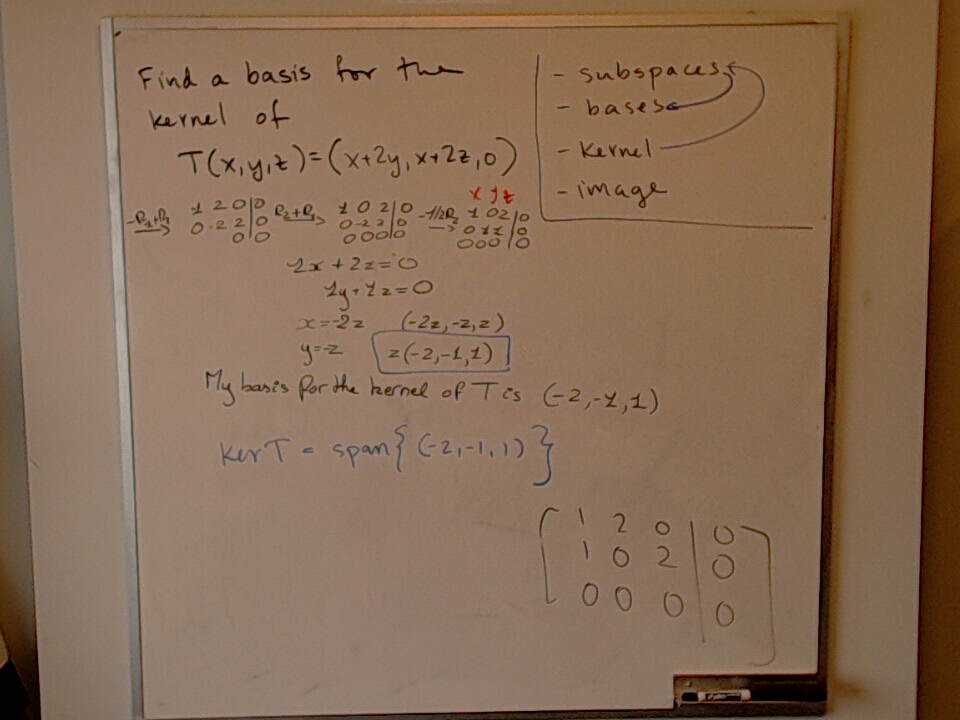 Find a basis for the
kernel of
T(x,y,z)=(x+2y, x+2z, 0)
- subspaces
- bases
- kernel
- image
x y z
-R1+R2 1 2 0|0 R2+R1 1 0 2|0 -1/2R2 1 0 2|0
0 -2 2|0 0 -2 2|0 0 1 1|0
0|0 0 0 0|0 0 0 0|0
1x + 2z = 0
1y + 1z = 0
x = -2z (-2z, -z, z)
y = -z z(-2,-1,1)
My basis for the kernel of T is (-2,-1,1)
ker T = span{(-2,-1,1)}
1 2 0 | 0
1 0 2 | 0
0 0 0 | 0